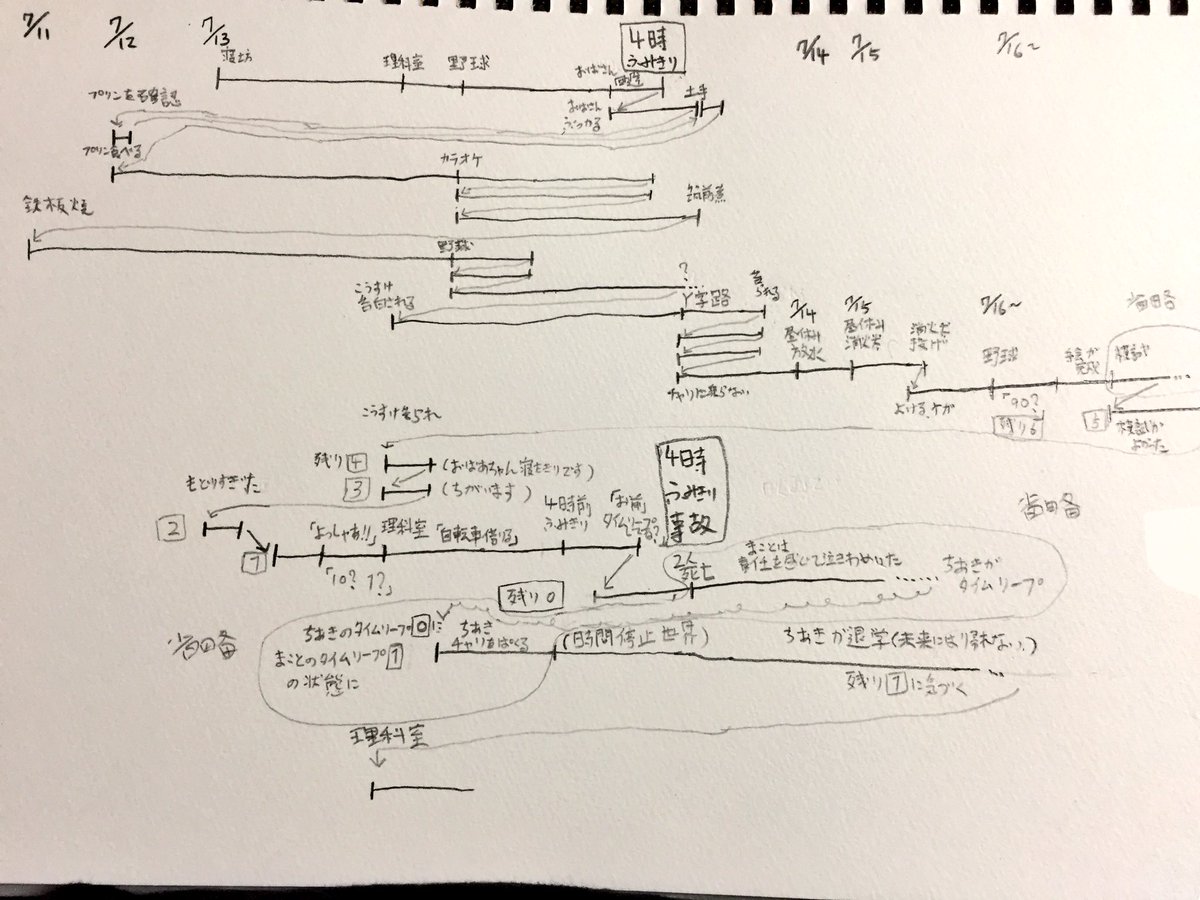 7/11
7/12
7/13
寝坊
理科室
野球
4時
ふみきり
7/14
7/15
7/16~
おばさん
土手
プリンを確認
おばさん
ぶつかる
プリン食べる
カラオケ
筑前煮
鉄板焼
野球
?
Y字路
こうすけ
告白される
告られる
7/14
昼休み
放水
7/15
昼休み
消火器
消火器
投げ
7/16~
野球
手会が
完成
チャリに乗らない
よける、ケガ
「90?
残り6
5
こうすけ告られ
残り4
(おばあちゃん寝たきりです)
3
(ちがいます)
もどりすぎた
2
1
「よっしゃあ!!」
理科室
「自転車借りる」
「10? 1?」
4時前
ふみきり
「お前
タイムリープしてる?」
4時
ふみきり
事故
2人
死亡
まことは
責任を感じて泣きわめいた
ちあきが
タイムリープ
残り0
ちあきのタイムリープ0に
まことのタイムリープ1
の状態に
ちあき
チャリをぱくる
(時間停止世界)
ちあきが退学(未来には帰れない)
残り1に気づく
理科室